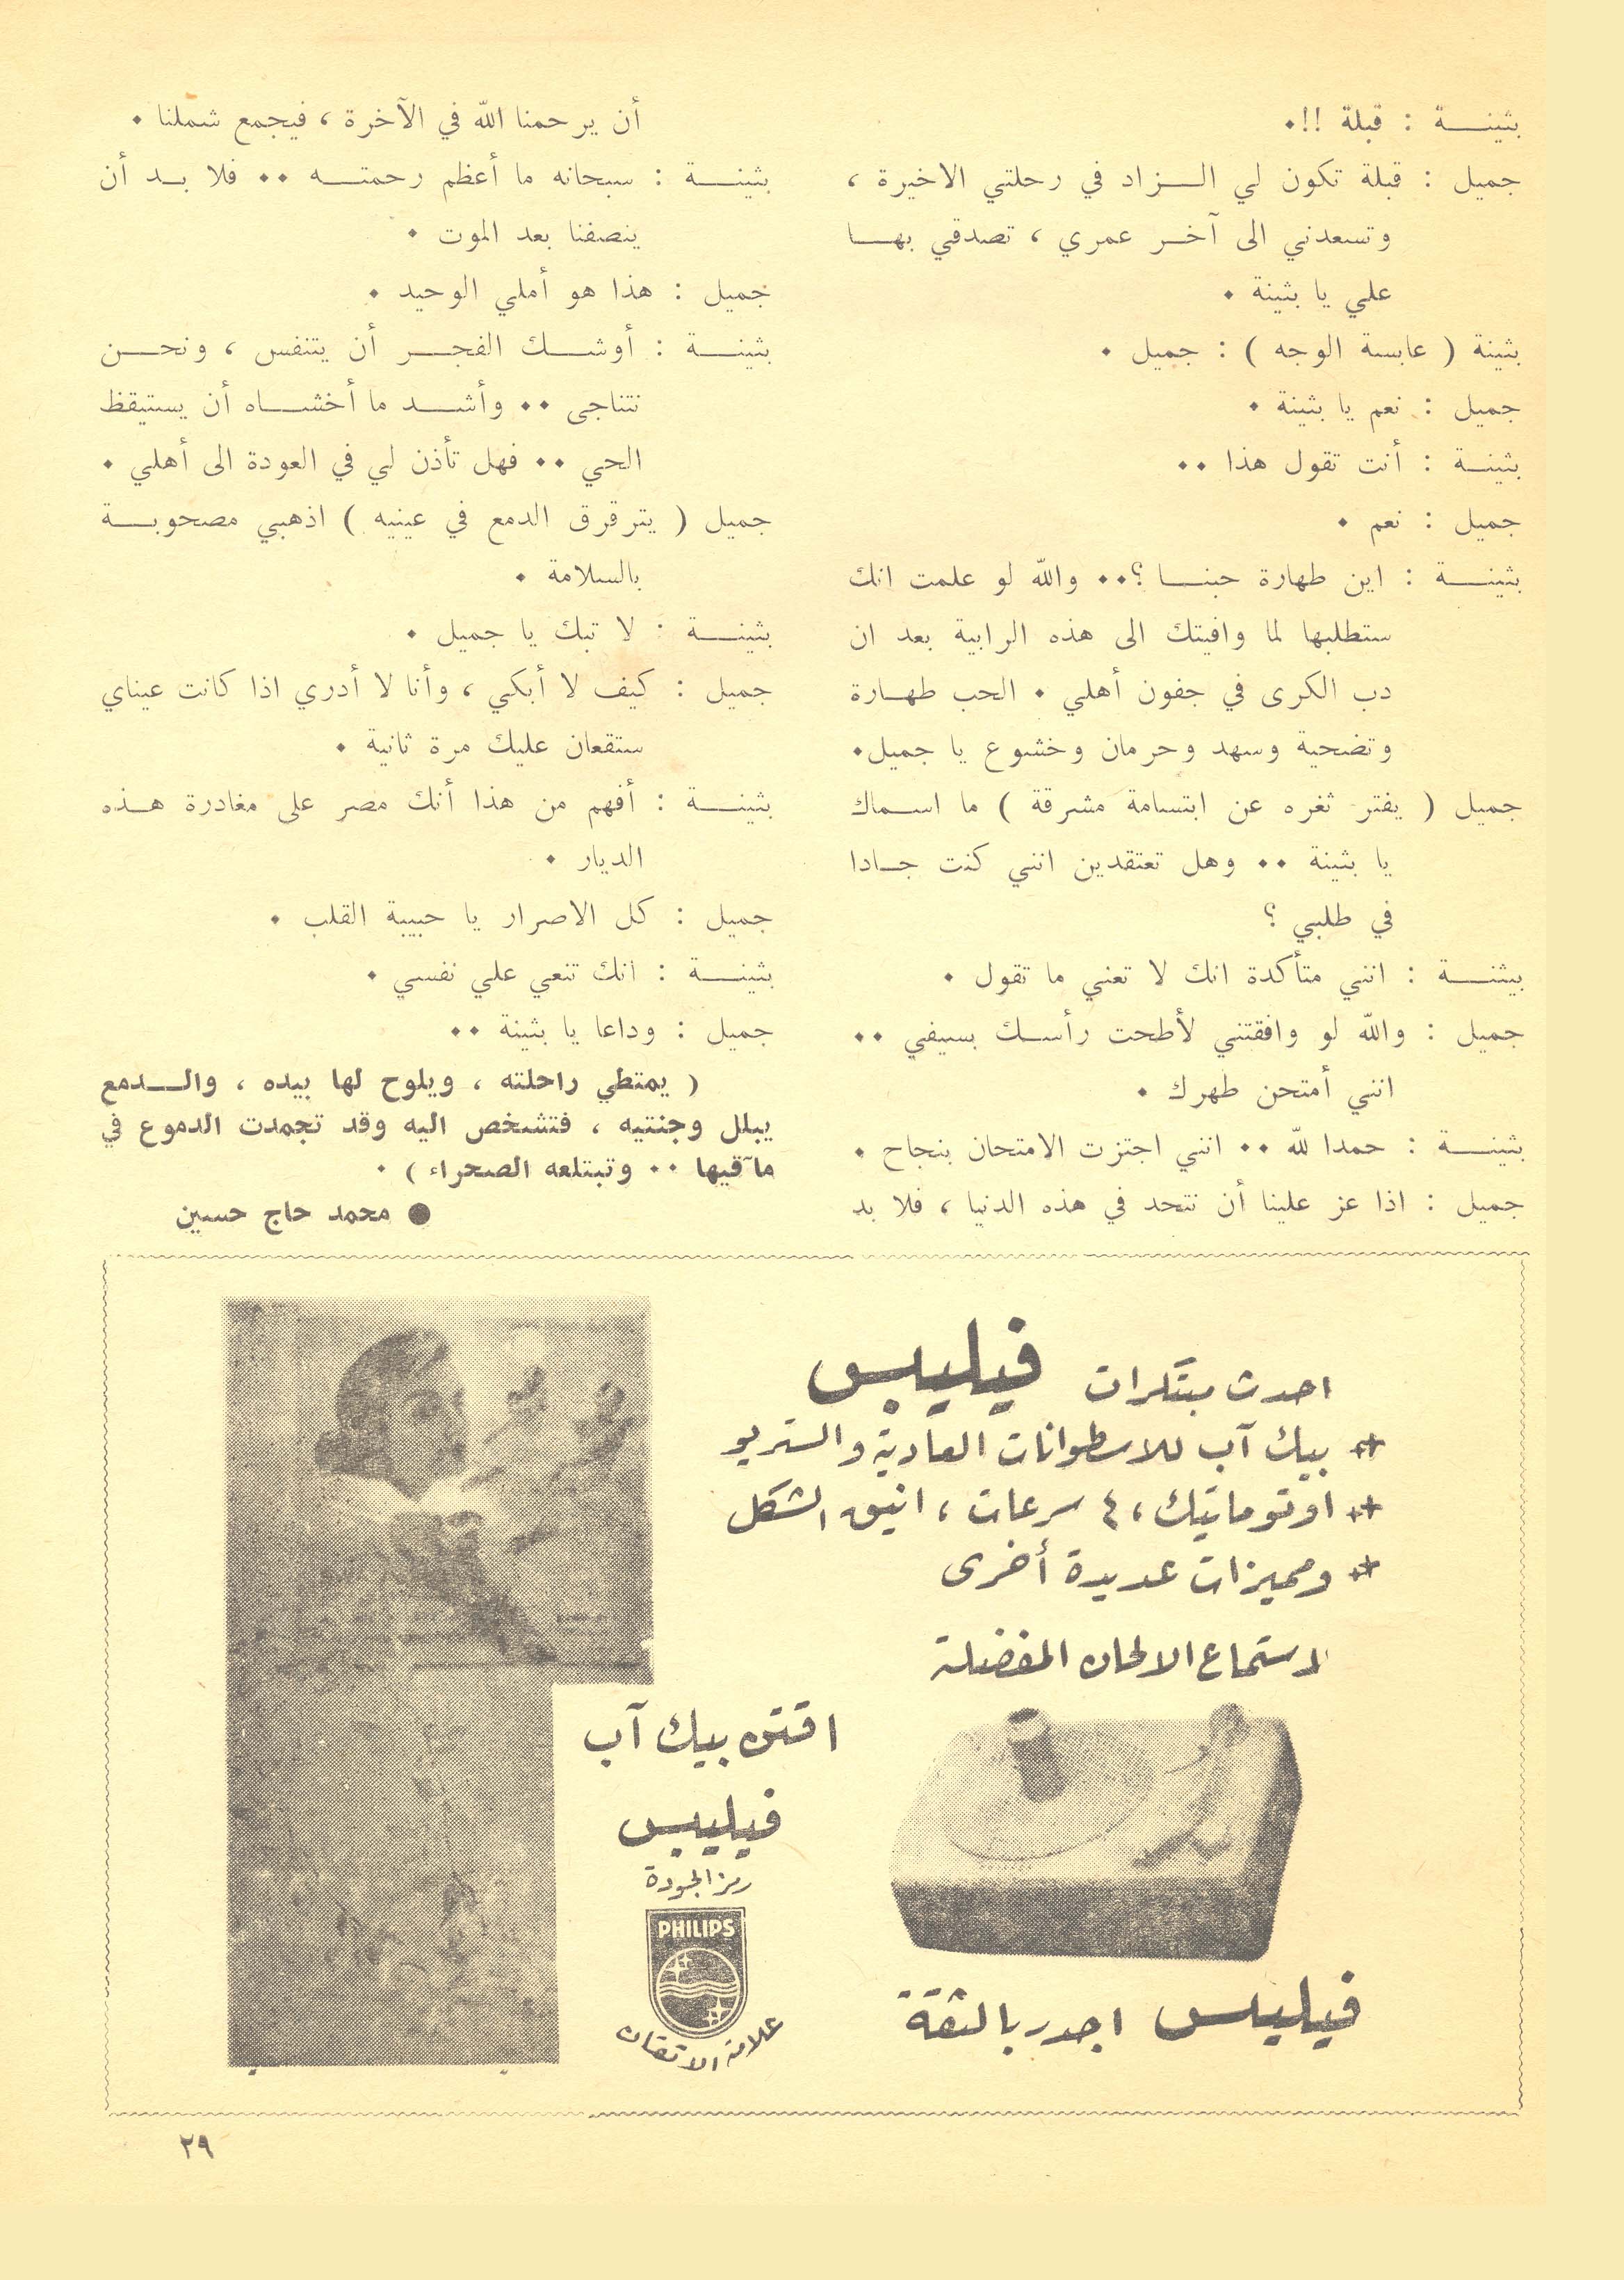 بثينـــة : قبلة !!٠
جميل : قبلة تكون لي الـــزاد في رحلتي الاخيرة ،
وتسعدني الى آخــر عمري ، تصدقي بهــا
علي يا بثينة ٠
بثينة ( عابسة الوجه ) : جميل ٠
جميل : نعم يا بثينة ٠
بثينــة : أنت تقول هذا ٠٠
جميل : نعم ٠
بثينـــة : اين طهارة حبنـــا ؟٠٠ والله لو علمت انك
ستطلبها لما وافيتك الى هذه الرابية بعد ان
دب الكرى في جفون أهلي ٠ الحب طهــارة
وتضحية وسهد وحرمان وخشوع يا جميل٠
جميل ( يفتر ثغره عن ابتسامة مشرقة ) ما اسـماك
يا بثينة ٠٠ وهل تعتقدين انني كنت جــادا
في طلبي ؟
بيثنـــة : انني متأكدة انك لا تعني ما تقول ٠
جميل : والله لو وافقتني لأطحت رأســك بسيفي ٠٠
انني أمتحن طهرك ٠
بثينـــة : حمدا لله ٠٠ انني اجتزت الامتحان بنجاح ٠
جميل : اذا عز علينا أن نتحد في هذه الدنيا ، فلا بد
أن يرحمنا الله في الآخرة ، فيجمع شملنا ٠
بثينـــة : سبحانه ما أعظم رحمتـــه ٠٠ فلا بــد أن
ينصفنا بعد الموت ٠
جميل : هذا هو أملي الوحيد ٠
بثينـــة : أوشــك الفجـــر أن يتنفس ، ونحـــن
نتناجى ٠٠ وأشــد ما أخشــاه أن يستيقظ
الحي ٠٠ فهل تأذن لي في العودة الى أهلي ٠
جميل ( يترقرق الدمع في عينيه ) اذهبي مصحوبــة
بالسلامة ٠
بثينـــة : لا تبك يا جميل ٠
جميل : كيف لا أبكي ، وأنا لا أدري اذا كانت عيناي
ستقعان عليك مرة ثانية ٠
بثينـــة : أفهم من هذا أنك مصر على مغادرة هــذه
الديار ٠
جميل : كل الاصرار يا حبيبة القلب ٠
بثينـــة : انك تنعي علي نفسي ٠
جميل : وداعا يا بثينة ٠٠
( يمتطي راحلته ، ويلوح لها بيده ، والـــدمع
يبلل وجنتيه ، فتشخص اليه وقد تجمدت الدموع في
مآقيها ٠٠ وتبتلعه الصحراء ) ٠
● محمد حاج حسين
احدث مبتكرات فيليبس
** بيك آب للاسطوانات العادية والستريو
** اوتوماتيك، ٤ سرعات، انيق الشكل
** ومميزات عديدة أخرى
لاستماع الالحان المفضلة
اقتن بيك آب
فيليبس
رمز الجودة
PHILIPS
علامة الاتقان
فيليبس اجدر بالثقة
٢٩